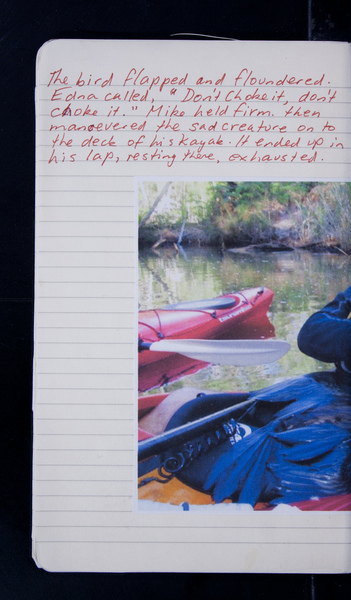 The bird flapped and floundered.
Edna called, "Don't Choke it, don't
choke it." Mike held firm. then
manoevered the sad creature on to
the deck of his Kayak. It ended up in
his lap, resting there, exhausted.